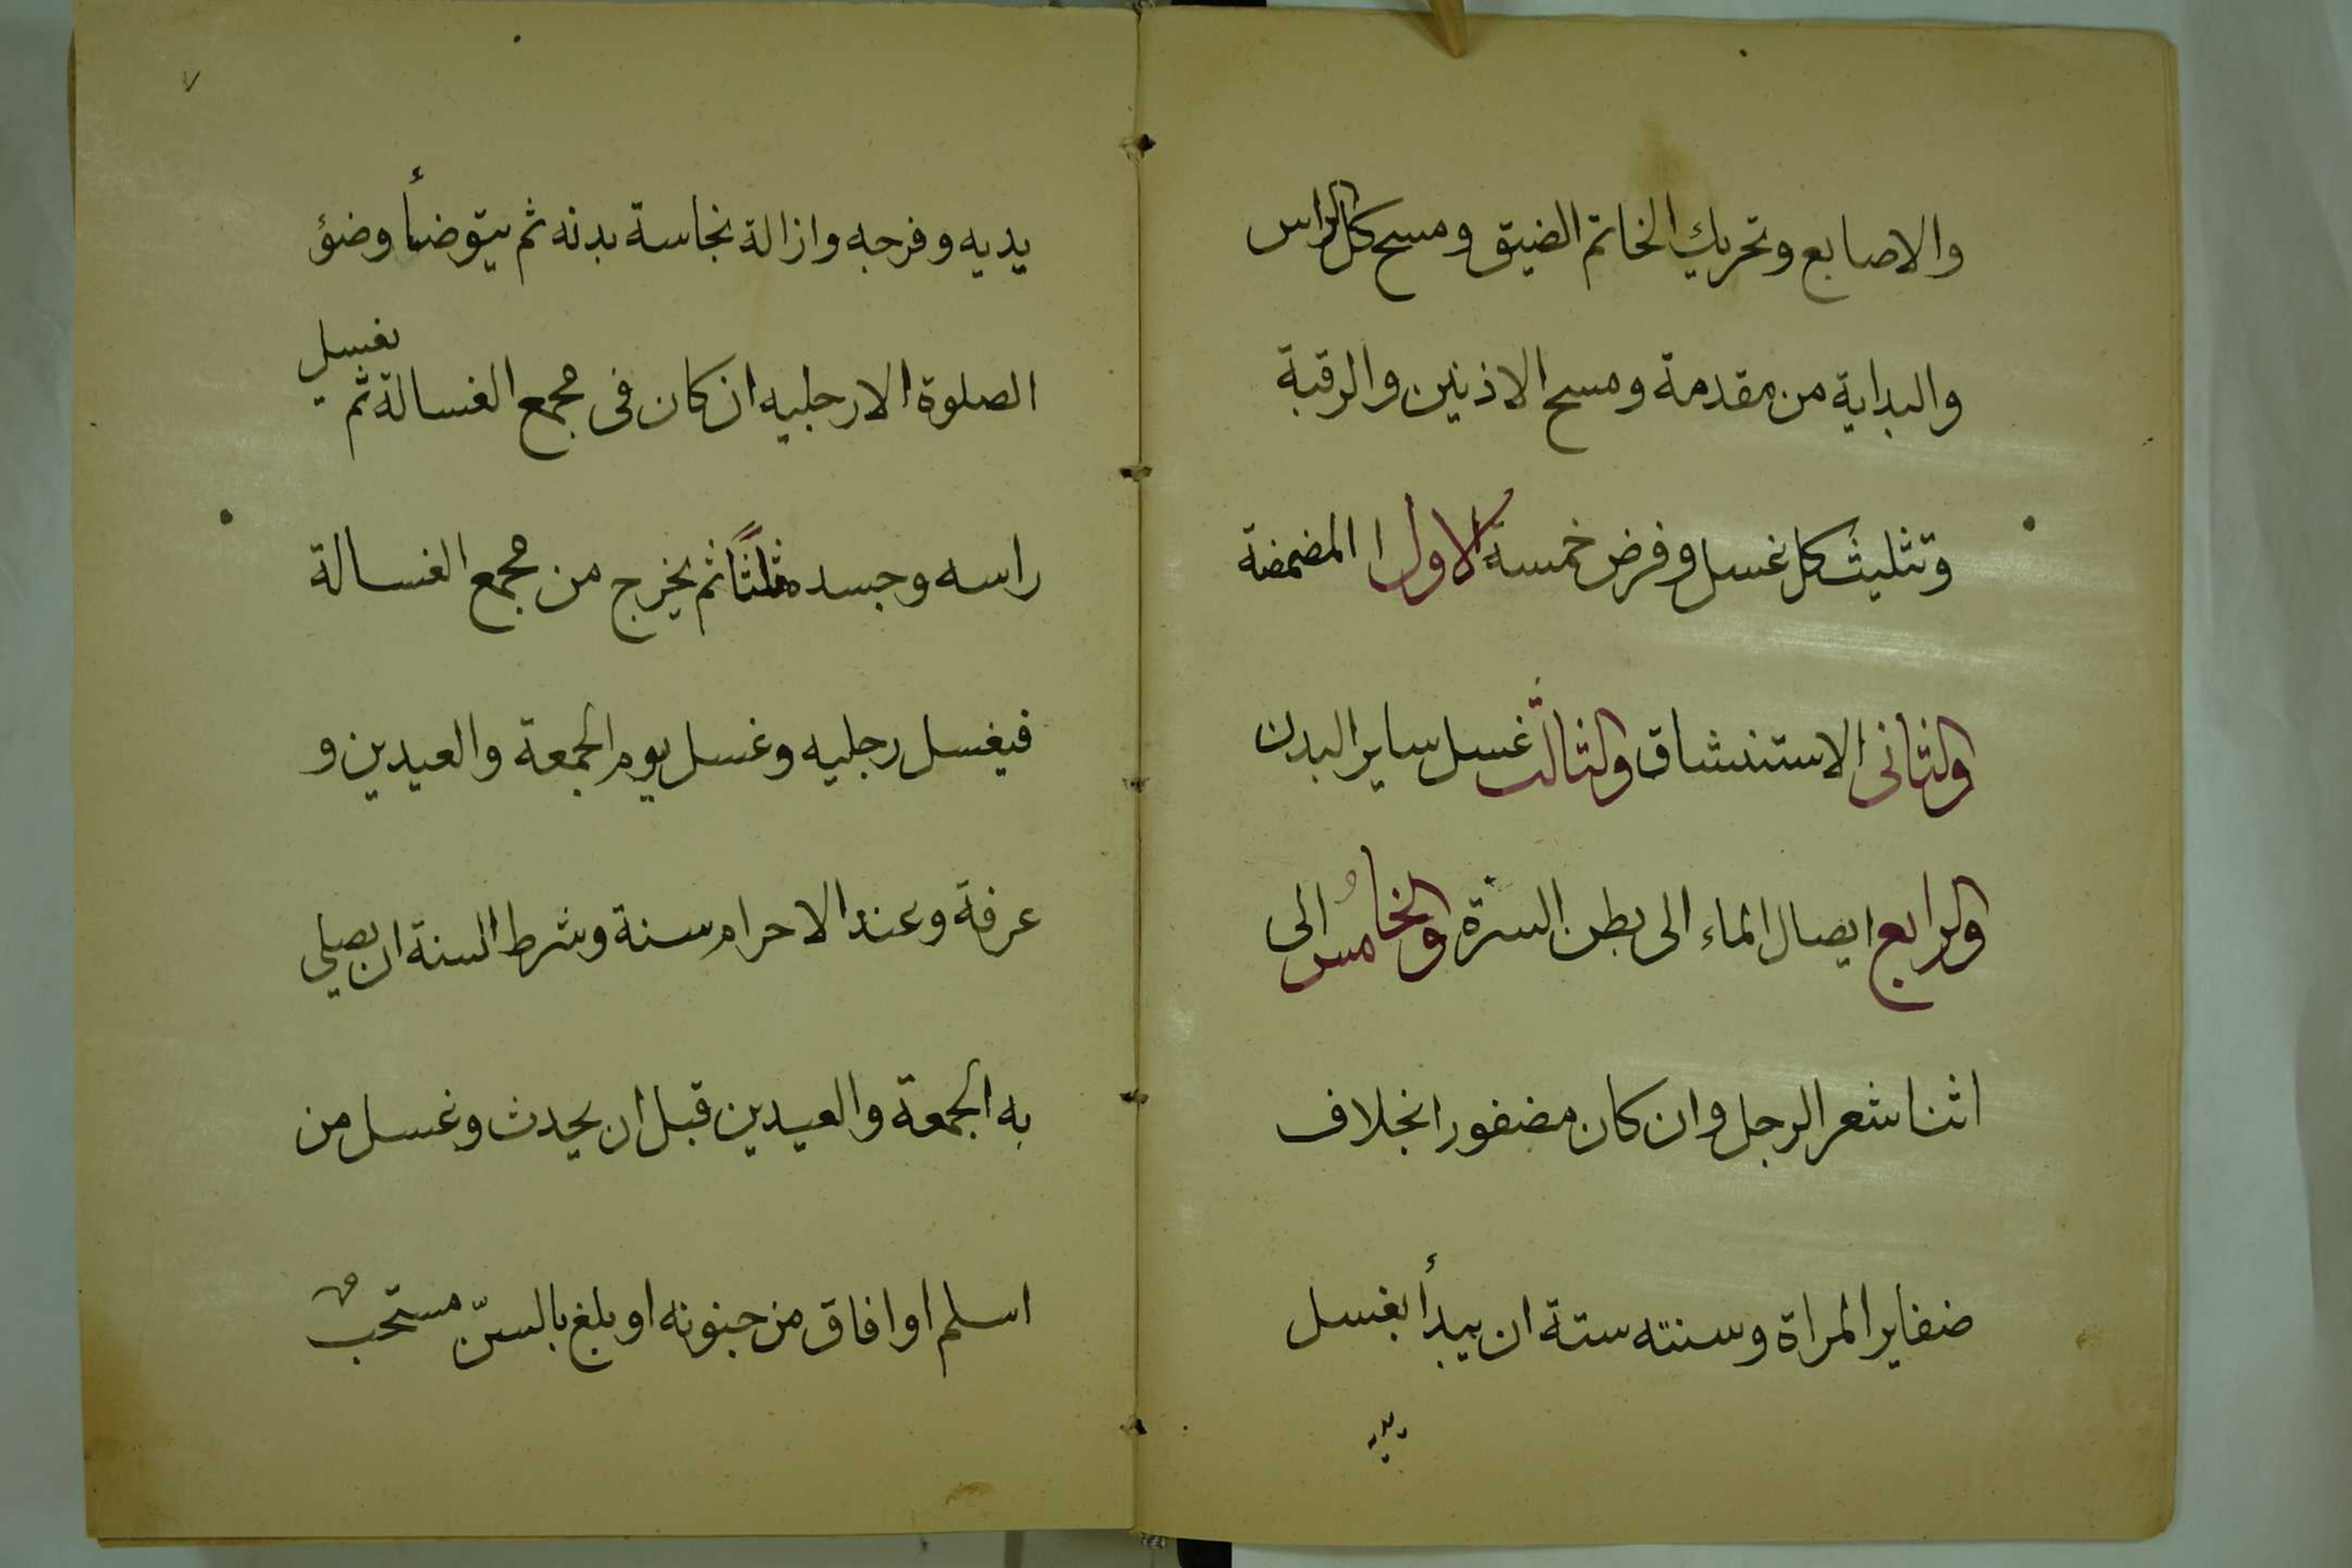 والاصابع وتحريك الخاتم الضيق ومسح كل الراس
والبداية من مقدمة ومسح الاذنين والرقبة
وتثليث كل غسل وفرض خمسة الاول المضمضة
والثانى الاستنشاق والثالث غسل ساير البدن
والرابع ايصال الماء الى بطن السرة والخامس الى
اثنا شعر الرجل وان كان مضفورا بخلاف
ضفاير المراة وسنته ستة ان يبدأ بغسل
يديه
٧
يديه وفرجه وازالة نجاسة بدنه ثم يتوضأ وضؤ
الصلوة الا رجليه ان كان فى مجمع الغسالة ثم يغسل
راسه وجسده ثلثًا ثم يخرج من مجمع الغسالة
فيغسل رجليه وغسل يوم الجمعة والعيدين و
عرفة وعند الاحرام سنة وشرط السنة ان يصلي
به الجمعة والعيدين قبل ان يحدث وغسل من
اسلم او افاق من جنونه او بلغ بالسنّ مستحب